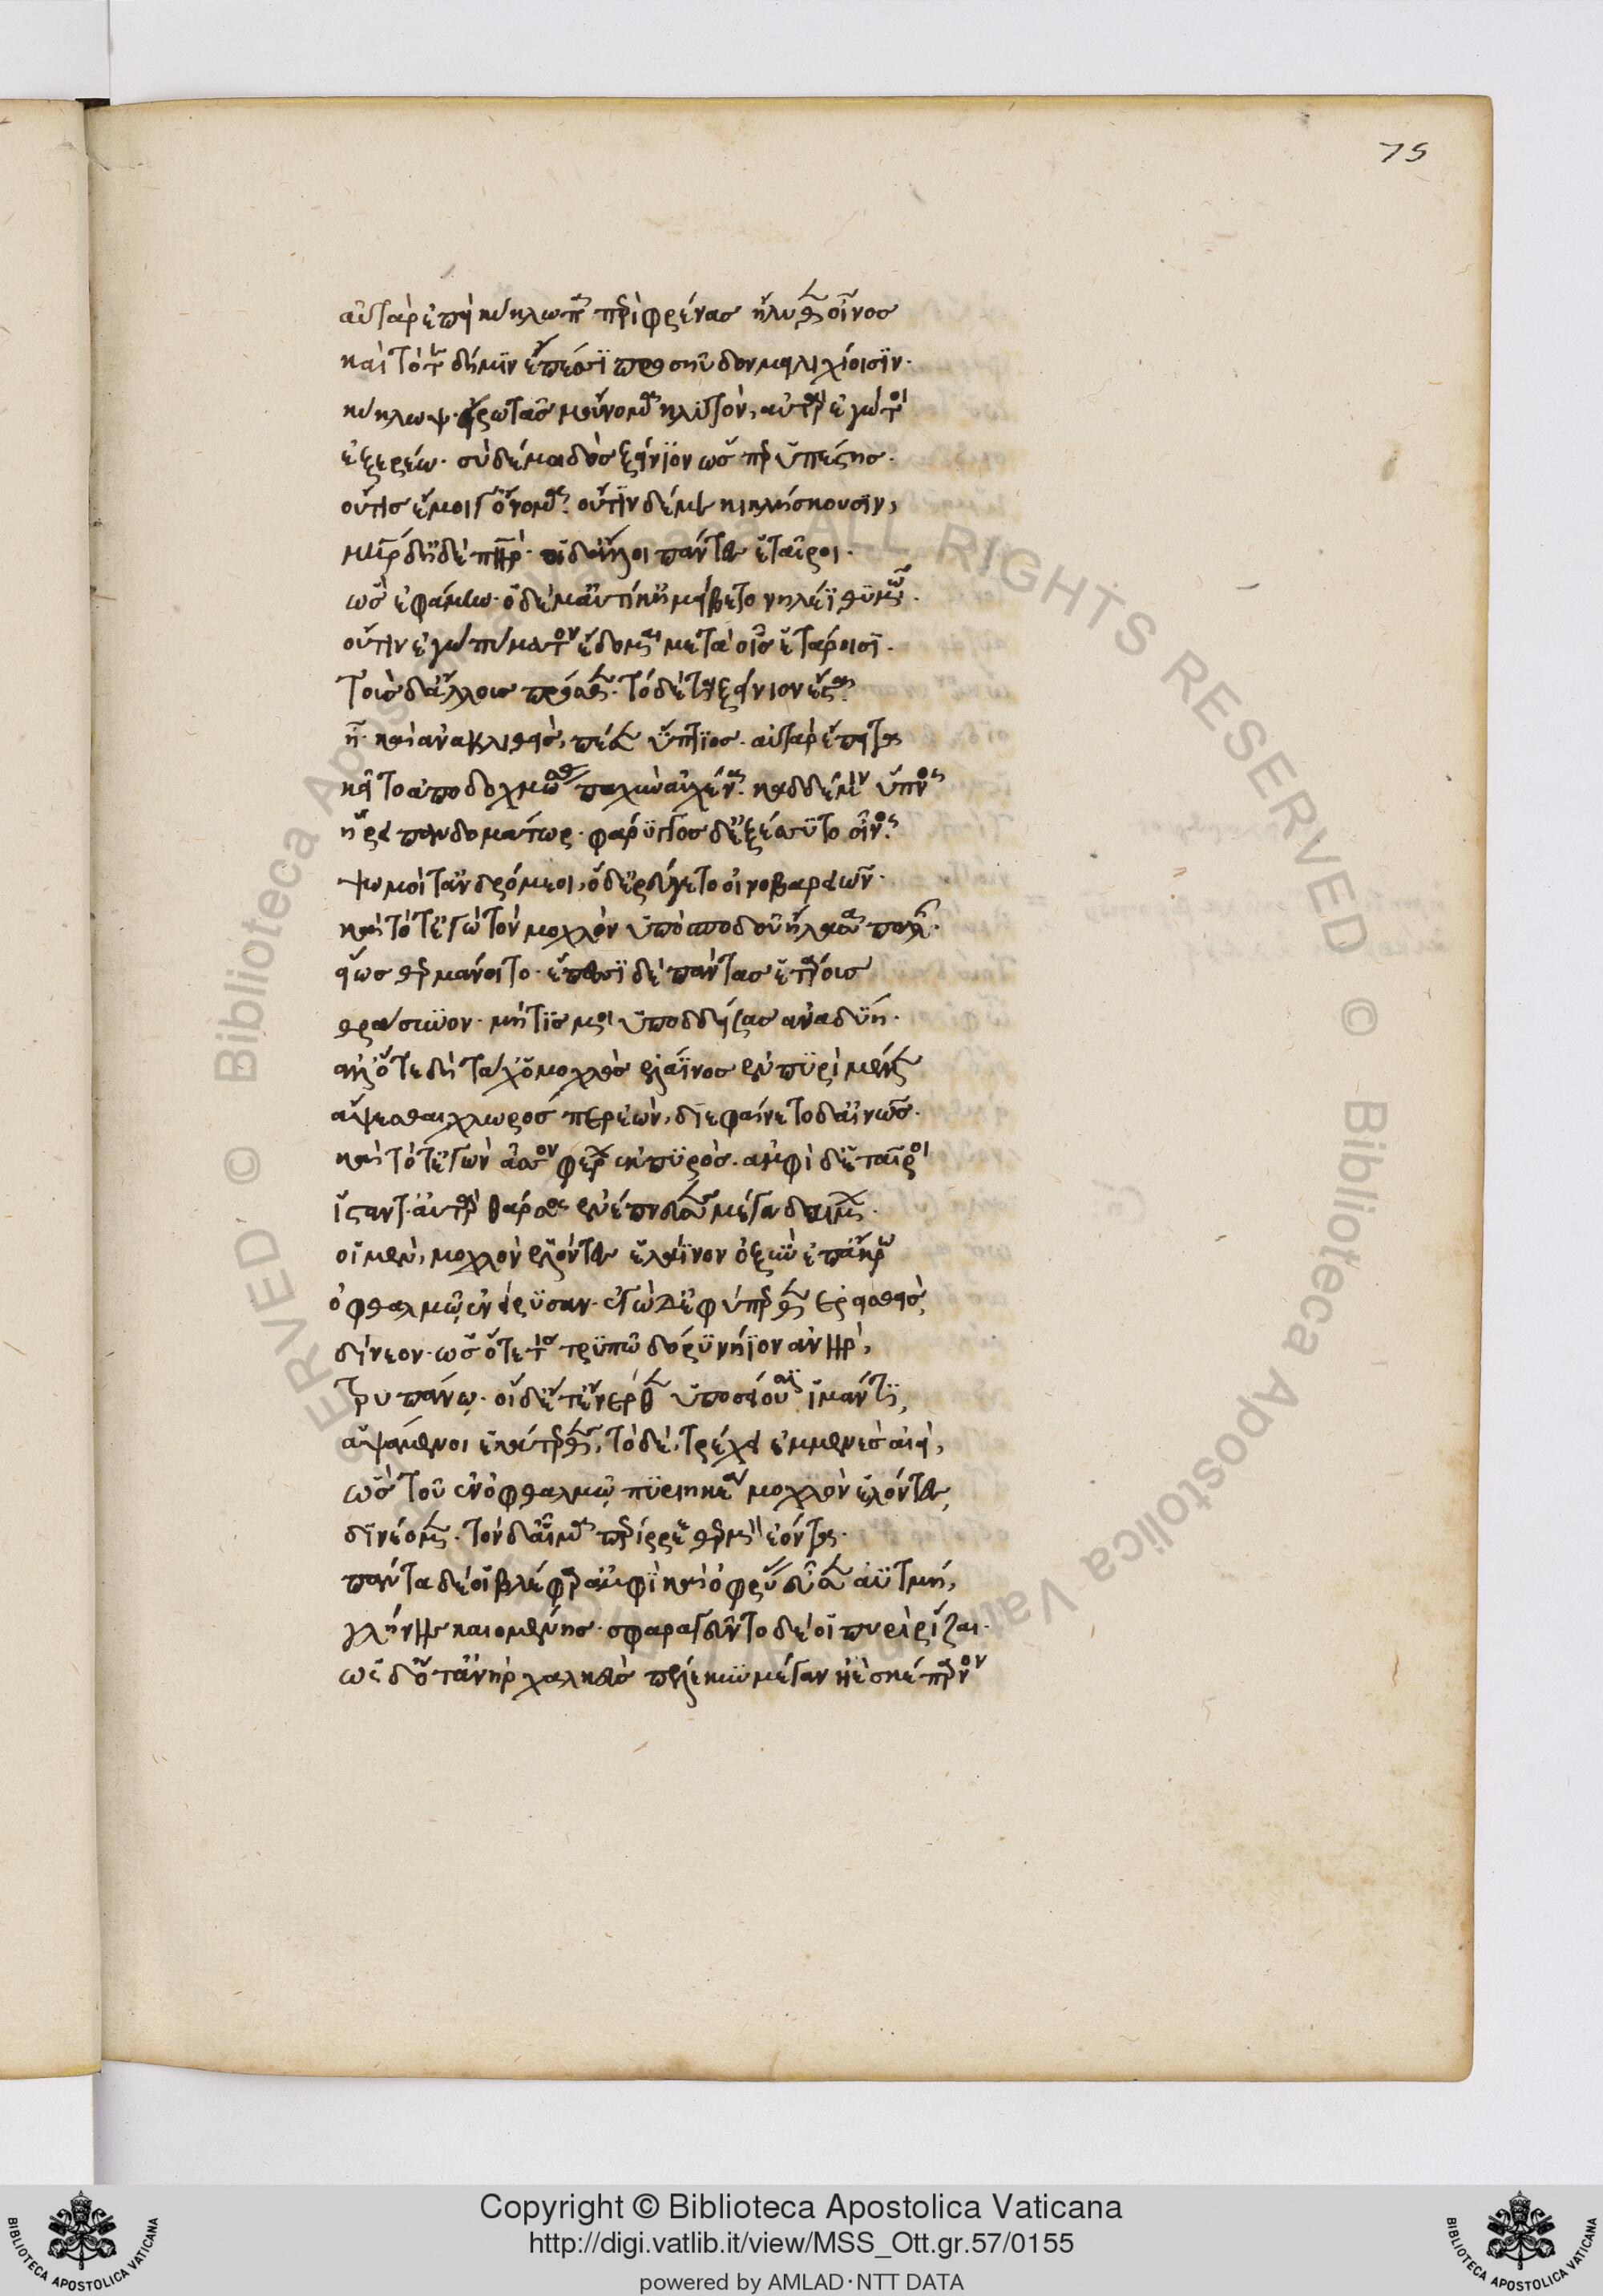 75
αὐτὰρ ἐπεὶ κύκλωπα περὶ φρένας ἤλυθεν οἶνος
καὶ τότε δή μιν ἔπεσσι προσηύδων μειλιχίοισιν·
κύκλωψ· εἰρωτᾶς μ' οὔνομα κλυτὸν, αὐτὰρ ἐγώ τοι
ἐξερέω· σὺ δέ μοι δὸς ξείνιον ὥς περ ὑπέστης·
οὖτις ἔμοιγ' ὄνομα· οὖτιν δέ με κικλήσκουσιν,
μήτηρ ἠδὲ πατὴρ· ἠδ' ἄλλοι πάντες ἑταῖροι·
ὣς ἐφάμην· ὁ δέ μ' αὐτίκ' ἠμείβετο νηλέϊ θυμῶ·
οὖτιν ἐγὼ πύματον ἔδομαι μετὰ οἷς ἑτάροισι·
τοὺς δ' ἄλλους πρόσθεν· τὸ δέ τοι ξείνιον ἔσται·
ἦ· καὶ ἀνακλινθεὶς, πέσεν ὕπτιος· αὐτὰρ ἔπειτα
κεῖτο ἀποδοχμώσας παχὺν αὐχένα· καδδέ μιν ὕπνος
ἥρει πανδαμάτωρ· φάρυγγος δ' ἐξέσσυτο οἶνος
ψωμοί τ' ἀνδρόμεοι, ὁ δ' ἐρεύγετο οἰνοβαρείων·
καὶ τότ' ἐγὼ τὸν μοχλὸν ὑπὸ σποδοῦ ἤλασα πολλῆς·
εἵως θερμαίνοιτο· ἔπεσσι δὲ πάντας ἑταίρους
θάρσυνον· μή τίς μοι ὑποδδείσας ἀναδύη·
ἀλλ' ὅτε δὴ τάχ' ὁ μοχλὸς ἐλάϊνος ἐν πυρὶ μέλλεν
ἅψεσθαι χλωρός περ ἐὼν, διεφαίνετο δ' αἰνῶς·
καὶ τότ' ἐγὼν ἆσσον φέρον ἐκ πυρὸς· ἀμφὶ δ' ἑταῖροι
ἵσταντ'· αὐτὰρ θάρσος ἐνέπνευσεν μέγα δαίμων·
οἱ μὲν, μοχλὸν ἑλόντες ἐλάϊνον ὀξὺν ἐπ' ἄκρω
ὀφθαλμῷ ἐνέρεισαν· ἐγὼ δ' ἐφύπερθεν ἐρεισθεὶς
δίνεον· ὡς ὅτε τις τρυπῶ δόρυ νήϊον ἀνὴρ,
τρυπάνῳ· οἱ δέ τ' ἔνερθεν ὑποσσείουσιν ἱμάντι,
ἁψάμενοι ἑκάτερθεν, τὸ δὲ, τρέχει ἐμμενὲς αἰεὶ,
ὣς τοῦ ἐν ὀφθαλμῷ πυριήκεα μοχλὸν ἑλόντες,
δινέομεν· τὸν δ' αἷμα περίρρεε θερμὸν ἐόντα·
πάντα δέ οἱ βλέφαρ' ἀμφὶ καὶ ὀφρύας εὗσεν ἀϋτμή,
γλήνης καιομένης· σφαραγεῦντο δέ οἱ πυρὶ ῥίζαι·
ὡς δ' ὅτ' ἀνὴρ χαλκεὺς πέλεκυν μέγαν ἠὲ σκέπαρνον
Copyright © Biblioteca Apostolica Vaticana
http://digi.vatlib.it/view/MSS_Ott.gr.57/0155
powered by AMLAD·NTT DATA